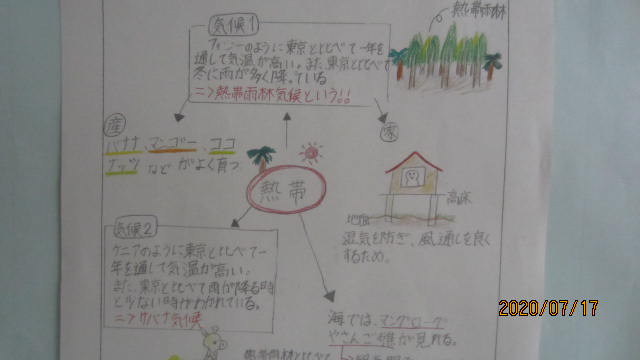 気候1
フィジーのように東京と比べて一年を
通して気温が高い。また、東京と比べて
冬に雨が多く降っている
=>熱帯雨林気候という!!
熱帯雨林
産
バナナ、マンゴー、ココ
ナッツなどがよく育つ
家
高床
地面
湿気を防ぎ、風通しを良く
するため。
熱帯
気候2
ケニアのように東京と比べて一
年を通して気温が高い。
また、東京と比べて雨が降る時
と少ない時がわかれている。
=>サバナ気候
海では、マングローブ
やさんご礁が見れる。
熱帯雨林と比べて
2020/07/17